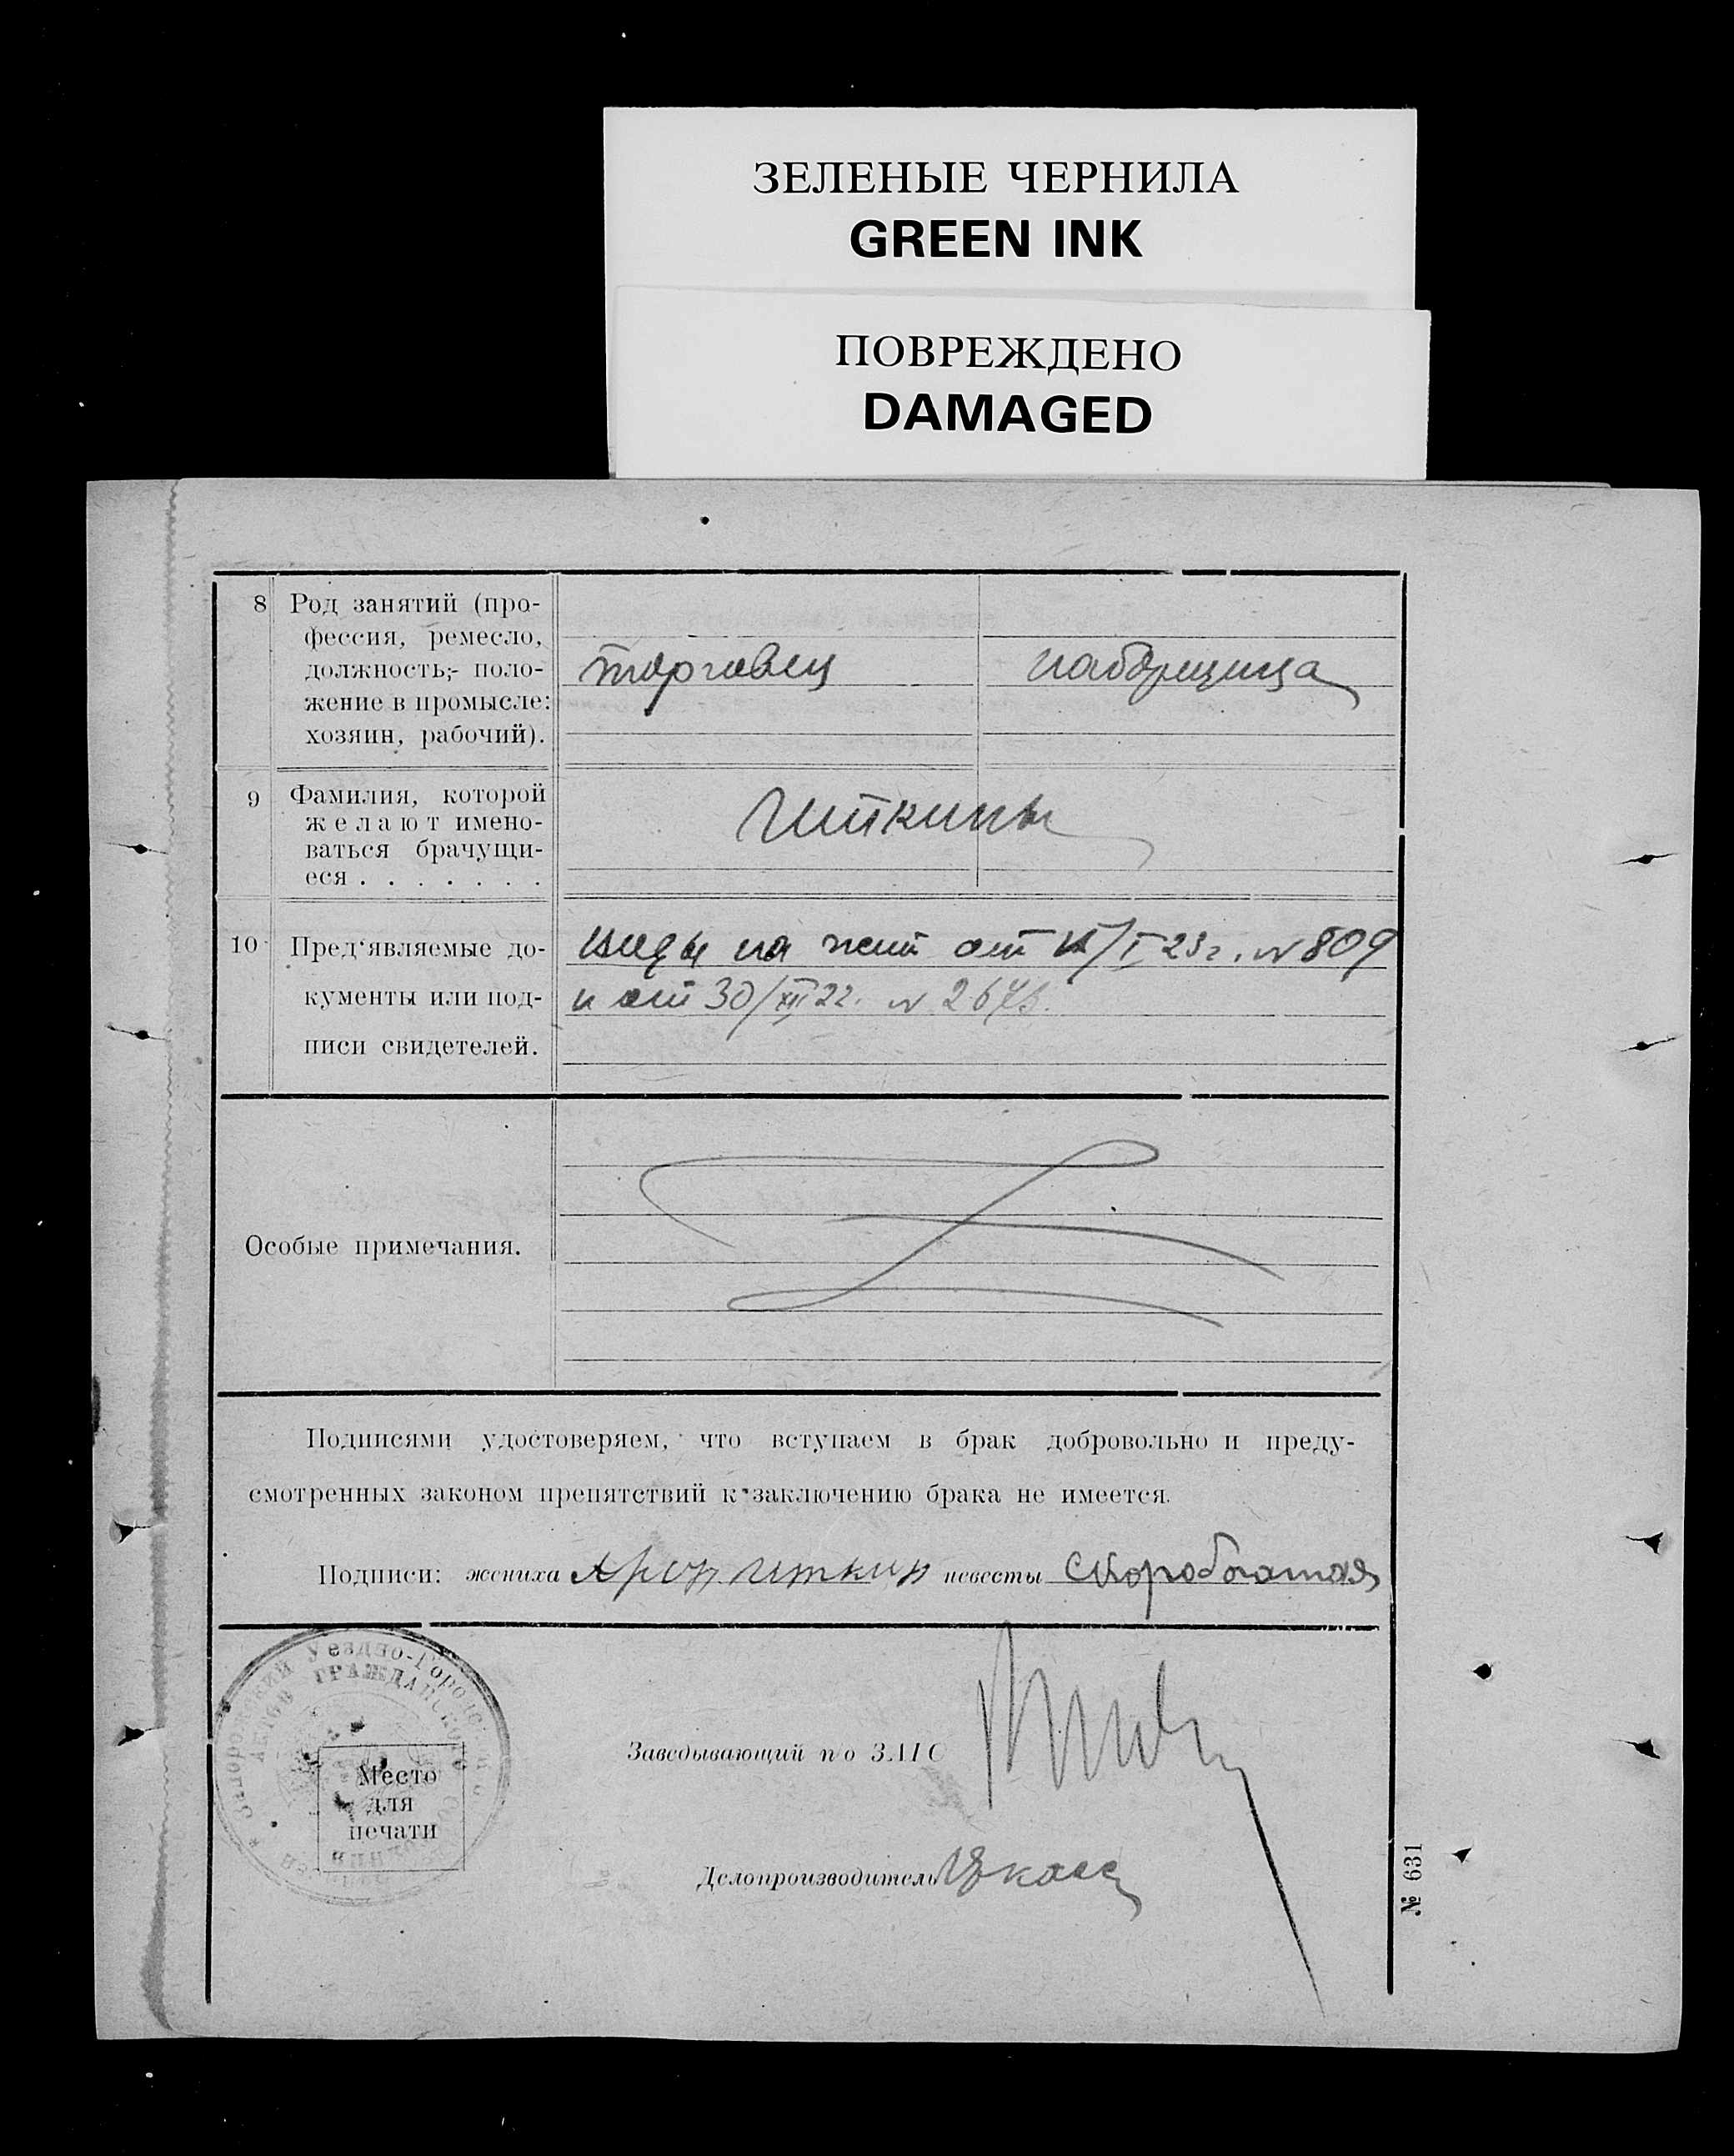 ЗЕЛЕНЫЕ ЧЕРНИЛА
GREEN INK
ПОВРЕЖДЕНО
DAMAGED
8 Род занятий (про-
фессия, ремесло,
должность;- поло-
жение в промысле:
хозяин, рабочий).
торговец
наборщица
9 Фамилия, которой
желают имено-
ваться брачущи-
еся . . . . . . .
Иткины
10 Пред'являемые до-
кументы или под-
писи свидетелей.
виды на жит от /I 23 г. № 809
и от 30/XII 22. №
Особые примечания.
Подписями удостоверяем, что вступаем в брак добровольно и преду-
смотренных законом препятствий к заключению брака не имеется.
Подписи: жениха Арон Иткин невесты Скоробогатая
Уездно-Городск
АКТОВ ГРАЖДАНСКОГО
Место
для
печати
Заведывающий по ЗАГС
Делопроизводитель
№ 631